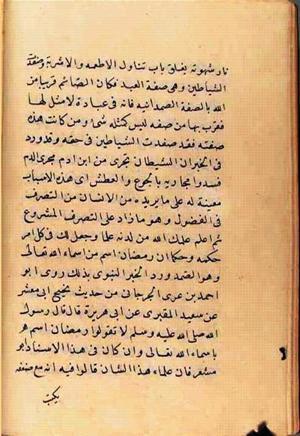 نار شهوته بغلق باب تناول الاطعمه والاشربة وصفة
الشياطين وهى صفة العبد فكان الصائم قريبا من
الله بالصفة الصمدانيه فانه فى عبادة لا مثل لها
فقرب بها من صفه ليس كمثله شئ ومن كانت هذه
صفته فقد صفدت الشياطين فى حقه وقد ورد
فى الخبر ان الشيطان يجرى من ابن ادم مجرى الدم
فسدوا مجاريه بالجوع والعطش اى هذه الاسباب
معينة له على ما يريده من الانسان من التصرف
فى الفضول وهو ما زاد على التصرف المشروع
ثم اعلم علمك الله من لدنه علما وجعل لك فى كل امر
حكمه وحكما ان رمضان اسم من اسماء الله تعالى
وهو الصمد ورد الخبر النبوى بذلك روى ابو
احمد بن عدى الجرجانى من حديث نجيح ابى معشر
عن سعيد المقبرى عن ابى هريرة قال قال رسول
الله صلى الله عليه وسلم لا تقولوا رمضان اسم هو
باسماء الله تعالى وان كان فى هذا الاسناد ابو
معشر فان علماء هذا الشان قالوا فيه انه مع ضعفه
يكتب